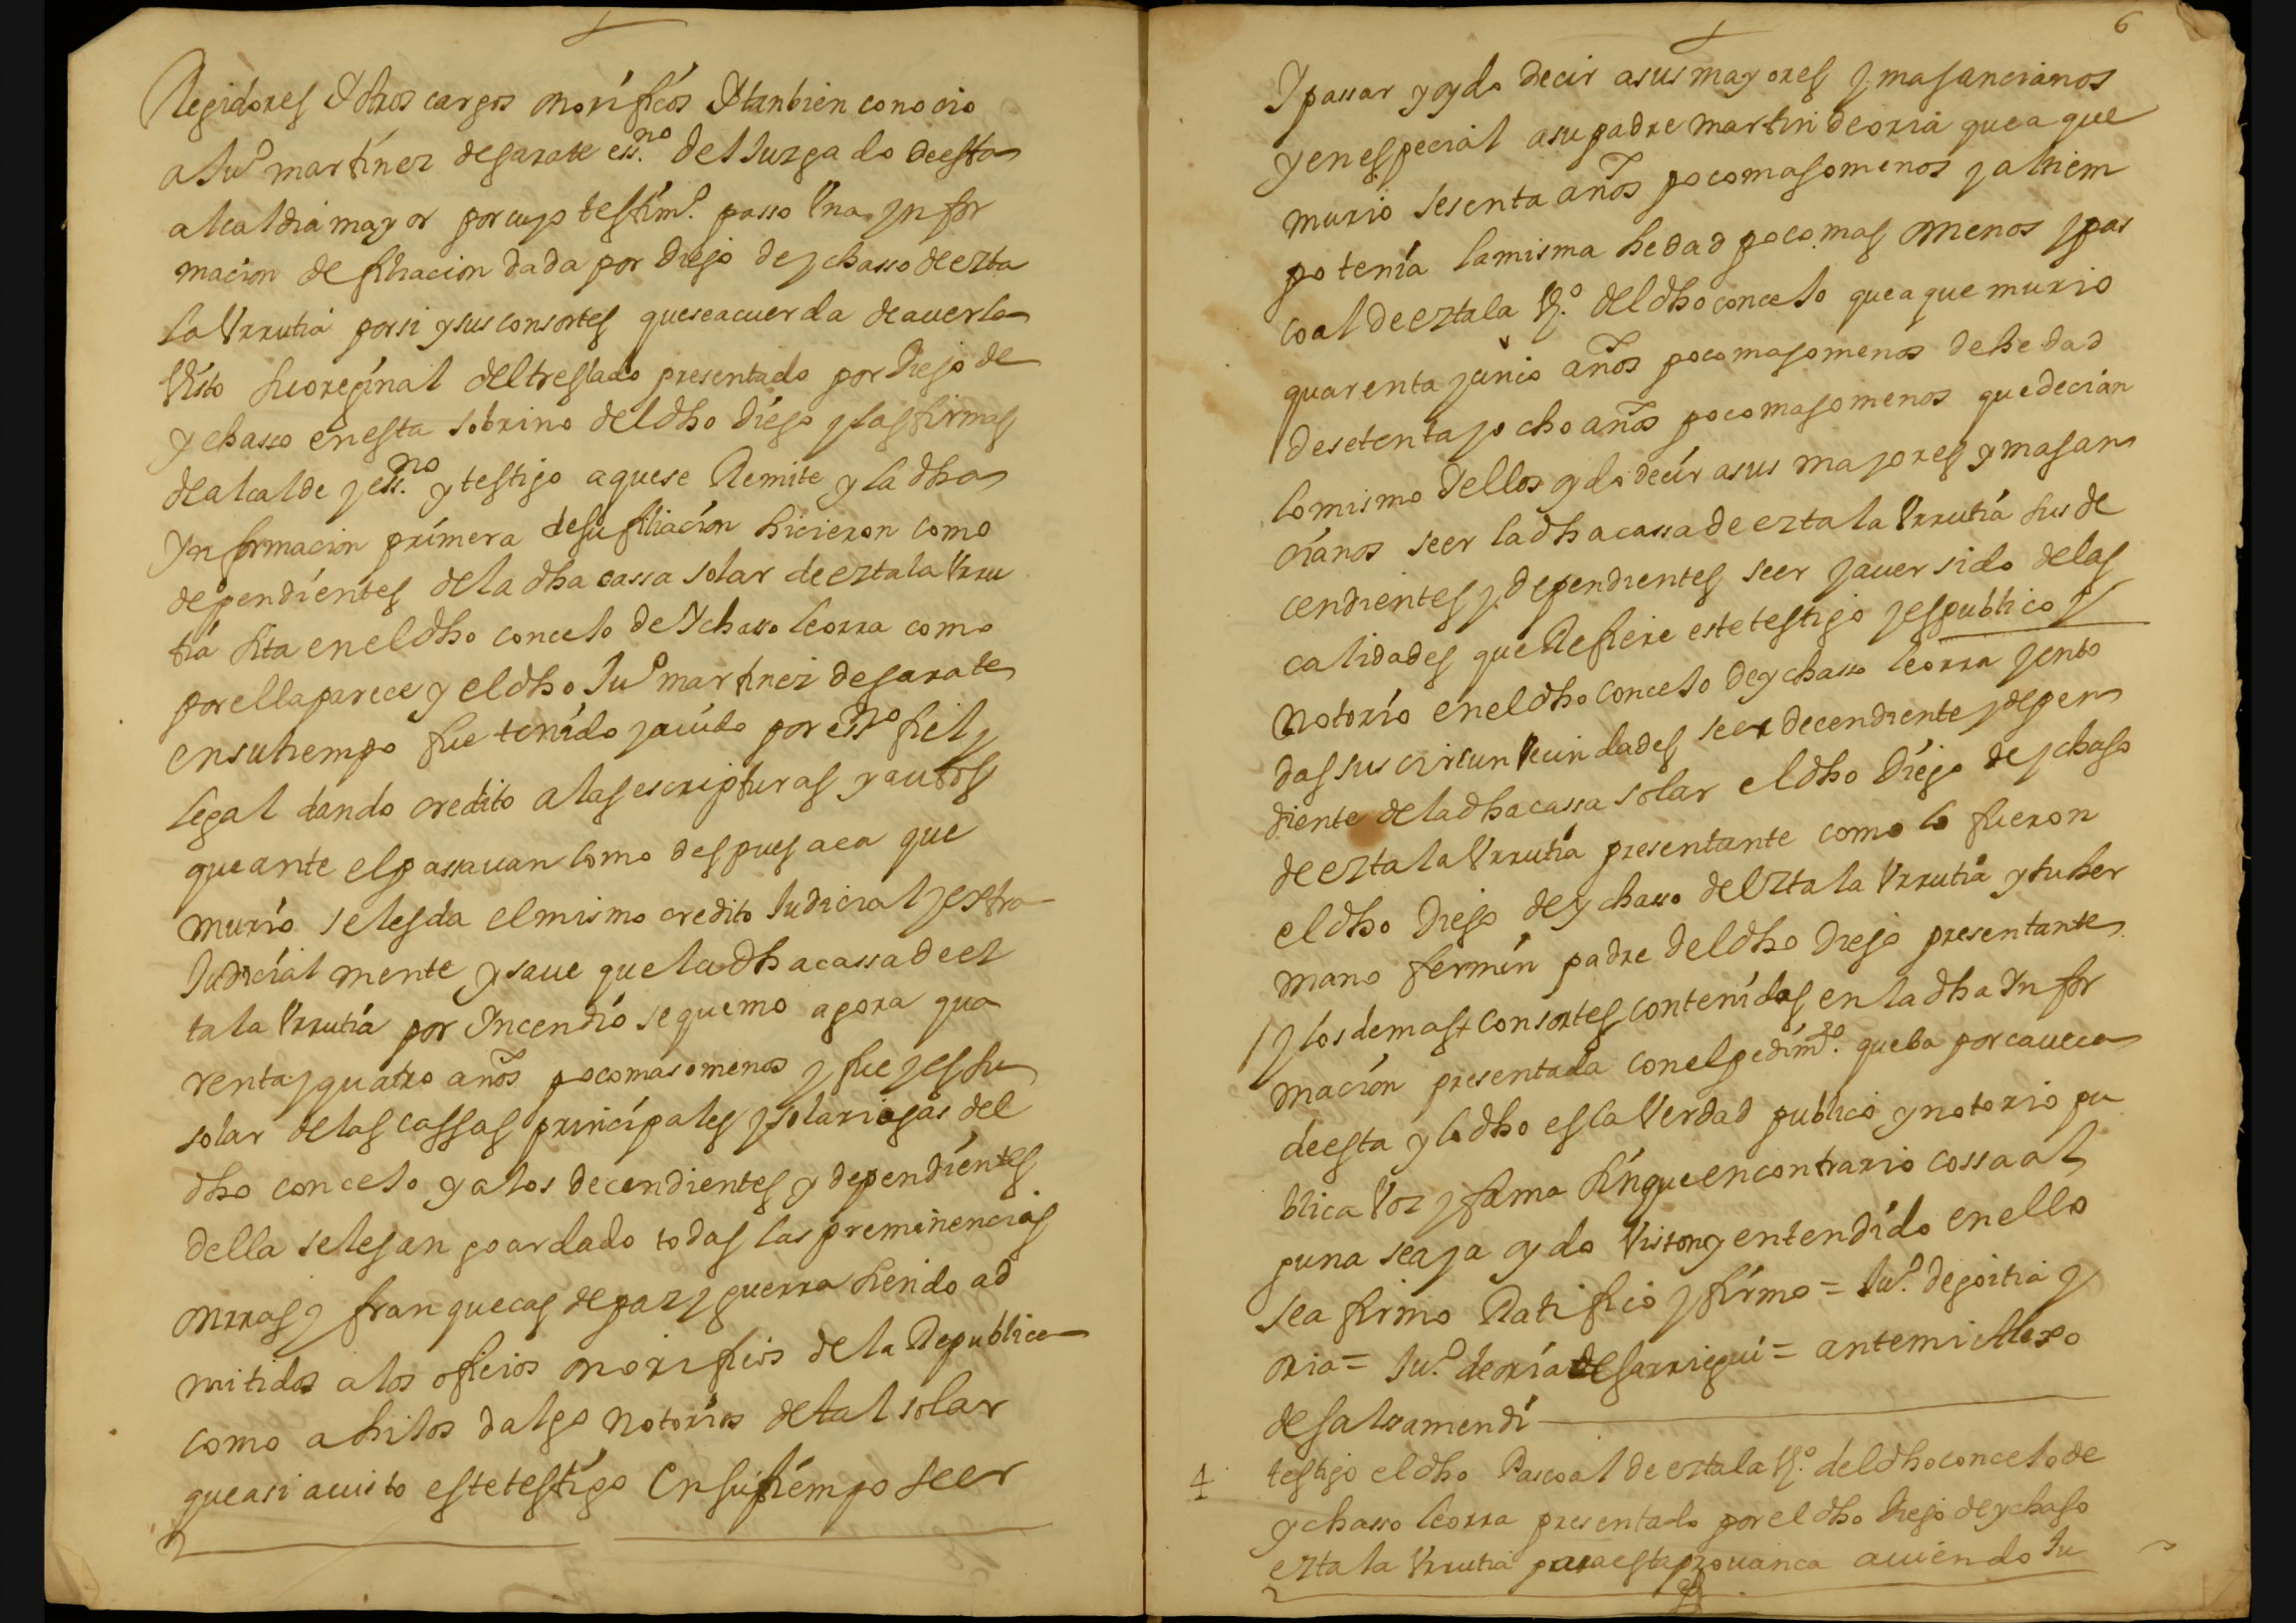 Regidores Y otros cargos onorificos Y tanbien conocio
a Juº martinez de garate essno del Juzgado de esta
alcaldia mayor por cuyo testimº passo Una ynfor
macion de filiacion dada por Diego de ychasso de ezta
la Urrutia por si y sus consortes que se acuerda de averla
Visto su oreginal del treslado presentado por Diego de
ychasso en esta sobrino del dho Diego y las firmas
de alcalde y essno y testigo a que se Remite y la dha
Ynformacion primera de su filiacion hicieron como
dependientes de la dha cassa solar de eztala Urru
tia sita en el dho concejo de Ychasso leorra como
por ella parece y el dho Juº martinez de garate
en su tiempo fue tenido y avido por essno fiel y
legal dando credito a las escripturas y autos
que ante el passavan como despues aca que
murio se les da el mismo credito Judicial y extra
Judicial mente y save que la dha cassa de ez
tala Urrutia por Incendio se quemo agora qua
renta y quatro años poco mas o menos y fue y es su
solar de las cassas principales y solariegas del
dho concejo y a los decendientes y dependientes
della se les an goardado todas las preminencias
onrras y franquecas de paz y guerra siendo ad
mitidos a los oficios onorificos de la Republica
como a hijos dalgo notorios de tal solar
que asi a visto este testigo En su tiempo seer
6
Y passar y oydo decir a sus mayores y mas ancianos
y en especial a su padre martin de oria que a que
murio sesenta años poco mas o menos y al tiem
po tenia la misma hedad poco mas o menos y pas
coal de eztala Vº del dho concejo que a que murio
quarenta y cinco años poco mas o menos de hedad
de setenta y ocho años poco mas o menos que decian
lo mismo dellos oydo decir a sus mayores y mas an
cianos seer la dha cassa de eztala Urrutia sus de
cendientes y dependientes seer y aver sido de las
calidades que Refiere este testigo y es publico y
notorio en el dho concejo de ychasso leorra y en to
das sus circun Vecindades seer decendiente y depen
diente de la dha cassa solar el dho Diego de ychaso
de eztala Urrutia presentante como lo fueron
el dho Diego de ychasso de Eztala Urrutia y su her
mano fermin padre del dho Diego presentante
y los demas consortes contenidos en la dha Infor
macion presentada con el pedimº que ba por caveca
de esta y lo dho es la Verdad publico y notorio pu
blica Voz y fama sin que en contrario cossa al
guna se aya oydo Visto ny entendido en ello
se afirmo Ratifico y firmo = Juº de goitia y
oria = Juº de oria de sarriegui = ante mi
de galssamendi
4 testigo el dho Pascoal de eztala Vº del dho concejo de
ychasso leorra presentado por el dho Diego de ychaso
eztala Urrutia para esta provanca aviendo Ju